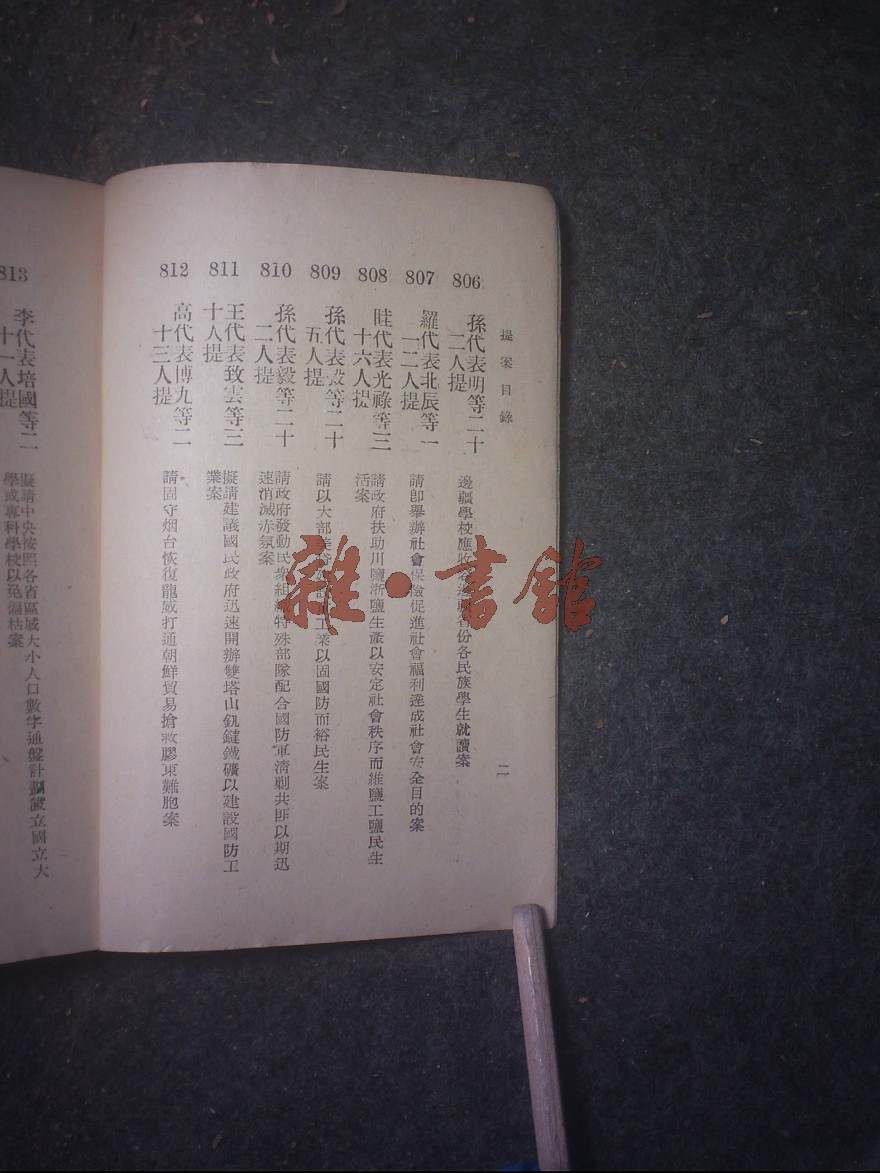 提案目錄
二
806
孫代表明等二十
二人提
邊疆學校應收容邊疆省份各民族學生就讀案
807
羅代表北辰等一
一二人提
請卽舉辦社會保險促進社會福利達成社會安全目的案
808
眭代表光祿等三
十六人提
請政府扶助川鹽浙鹽生產以安定社會秩序而維鹽工鹽民生
活案
809
孫代表毅等二十
五人提
請以大部美貸建設重工業以固國防而裕民生案
810
孫代表毅等二十
二人提
請政府發動民衆組織特殊部隊配合國防軍清剿共匪以期迅
速消滅赤氛案
811
王代表致雲等三
十人提
擬請建議國民政府迅速開辦雙塔山釩鏈鐵礦以建設國防工
業案
812
高代表博九等二
十三人提
請固守烟台恢復龍威打通朝鮮貿易搶救膠東難胞案
813
李代表培國等二
十一人提
擬請中央按照各省區域大小人口數字通盤計劃設立國立大
學或專科學校以免偏枯案
雜·書館